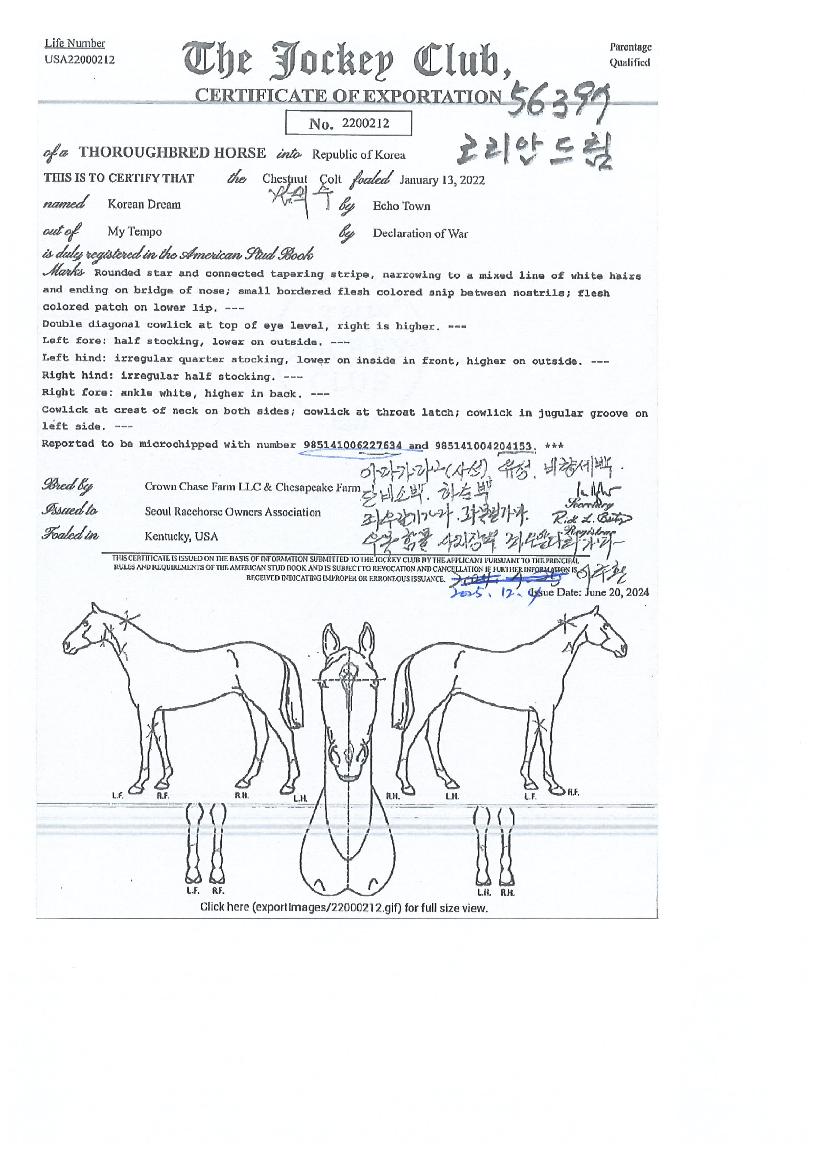 Life Number
USA22000212
The Jockey Club,
Parentage
Qualified
CERTIFICATE OF EXPORTATION
56397
No. 2200212
코리안드림
of a THOROUGHBRED HORSE into Republic of Korea
THIS IS TO CERTIFY THAT the Chestnut Colt foaled January 13, 2022
named Korean Dream by Echo Town
out of My Tempo by Declaration of War
is duly registered in the American Stud Book
Marks Rounded star and connected tapering stripe, narrowing to a mixed line of white hairs
and ending on bridge of nose; small bordered flesh colored snip between nostrils; flesh
colored patch on lower lip. ---
Double diagonal cowlick at top of eye level, right is higher. ---
Left fore: half stocking, lower on outside. ---
Left hind: irregular quarter stocking, lower on inside in front, higher on outside. ---
Right hind: irregular half stocking. ---
Right fore: ankle white, higher in back. ---
Cowlick at crest of neck on both sides; cowlick at throat latch; cowlick in jugular groove on
left side. ---
Reported to be microchipped with number 985141006227634 and 985141004204153. ***
Bred by Crown Chase Farm LLC & Chesapeake Farm
Secretary
Issued to Seoul Racehorse Owners Association
Registrar
Foaled in Kentucky, USA
THIS CERTIFICATE IS ISSUED ON THE BASIS OF INFORMATION SUBMITTED TO THE JOCKEY CLUB BY THE APPLICANT PURSUANT TO THE PRINCIPAL
RULES AND REQUIREMENTS OF THE AMERICAN STUD BOOK AND IS SUBJECT TO REVOCATION AND CANCELLATION IF FURTHER INFORMATION IS
RECEIVED INDICATING IMPROPER OR ERRONEOUS ISSUANCE.
2025. 12. 9
Issue Date: June 20, 2024
L.F. R.F. R.H. L.H. R.H. L.H. L.F. R.F.
L.F. R.F. L.H. R.H.
Click here (exportimages/22000212.gif) for full size view.